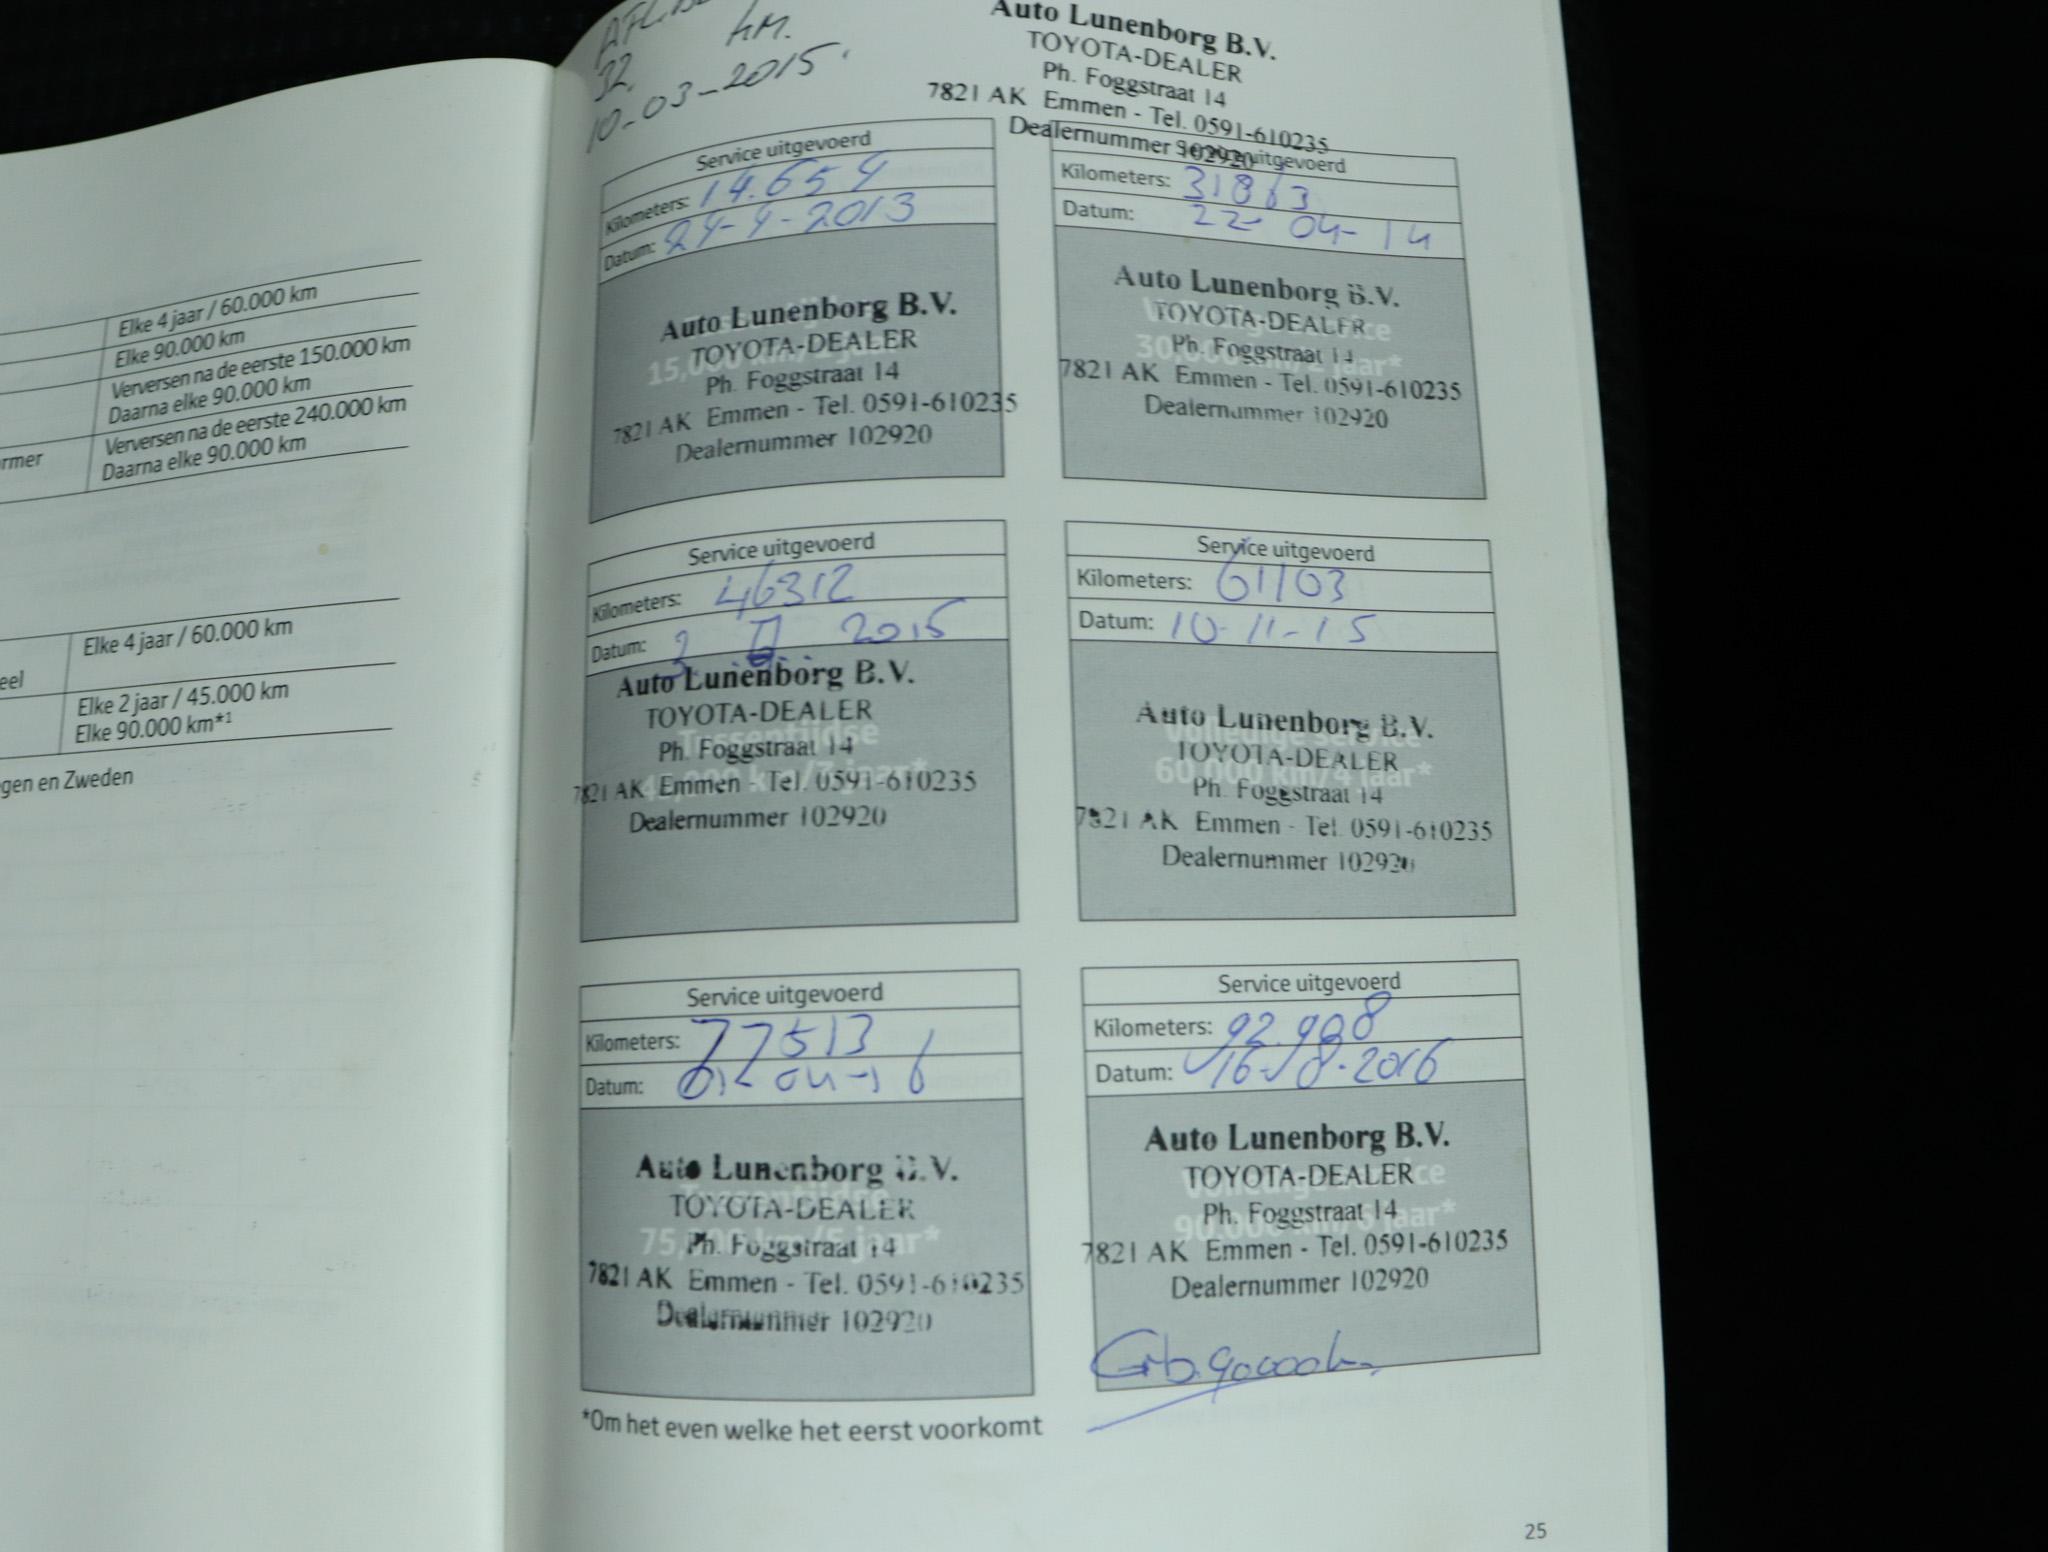 Elke 4 jaar / 60.000 km
Elke 90.000 km
Verversen na de eerste 150.000 km
Daarna elke 90.000 km
rmer
Verversen na de eerste 240.000 km
Daarna elke 90.000 km
Elke 4 jaar / 60.000 km
eel
Elke 2 jaar / 45.000 km
Elke 90.000 km*1
gen en Zweden
KM.
32.
10-03-2015.
Auto Lunenborg B.V.
TOYOTA-DEALER
Ph. Foggstraat 14
7821 AK Emmen - Tel. 0591-610235
Dealernummer 102920
Service uitgevoerd
Kilometers: 14.654
Datum: 24-4-2013
Auto Lunenborg B.V.
TOYOTA-DEALER
15,000 km/1 jaar*
Ph. Foggstraat 14
7821 AK Emmen - Tel. 0591-610235
Dealernummer 102920
Service uitgevoerd
Kilometers: 31863
Datum: 22-04-14
Auto Lunenborg B.V.
Volledige service
TOYOTA-DEALER
30,000 km/2 jaar*
Ph. Foggstraat 14
7821 AK Emmen - Tel. 0591-610235
Dealernummer 102920
Service uitgevoerd
Kilometers: 46312
Datum: 3 2015
Auto Lunenborg B.V.
TOYOTA-DEALER
Tussentijdse
Ph. Foggstraat 14
45,000 km/3 jaar*
7821 AK Emmen - Tel. 0591-610235
Dealernummer 102920
Service uitgevoerd
Kilometers: 61103
Datum: 10-11-15
Auto Lunenborg B.V.
Volledige service
TOYOTA-DEALER
60.000 km/4 jaar*
Ph. Foggstraat 14
7821 AK Emmen - Tel. 0591-610235
Dealernummer 102920
Service uitgevoerd
Kilometers: 77513
Datum: 04-16
Auto Lunenborg B.V.
Tussentijdse
TOYOTA-DEALER
75,000 km/5 jaar*
Ph. Foggstraat 14
7821 AK Emmen - Tel. 0591-610235
Dealernummer 102920
Service uitgevoerd
Kilometers: 92.908
Datum: 16-8-2016
Auto Lunenborg B.V.
TOYOTA-DEALER
Volledige service
Ph. Foggstraat 14
90.000 km/6 jaar*
7821 AK Emmen - Tel. 0591-610235
Dealernummer 102920
*Om het even welke het eerst voorkomt
25